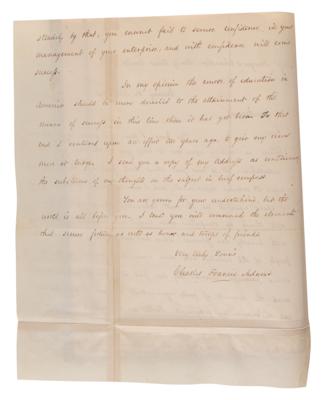 steadily by that, you cannot fail to secure confidence in your
management of your enterprise, and with confidence will come
success.
In my opinion the course of education in
America should be more devoted to the attainment of the
means of success in this line than it has yet been. To that
end I ventured upon an effort two years ago to give my views
more at large. I send you a copy of my Address as containing
the substance of my thoughts on the subject in brief compass.
You are young for your undertaking, but the
world is all before you. I trust you will command the elements
that secure fortune as well as honor and troops of friends
Very truly Yours
Charles Francis Adams